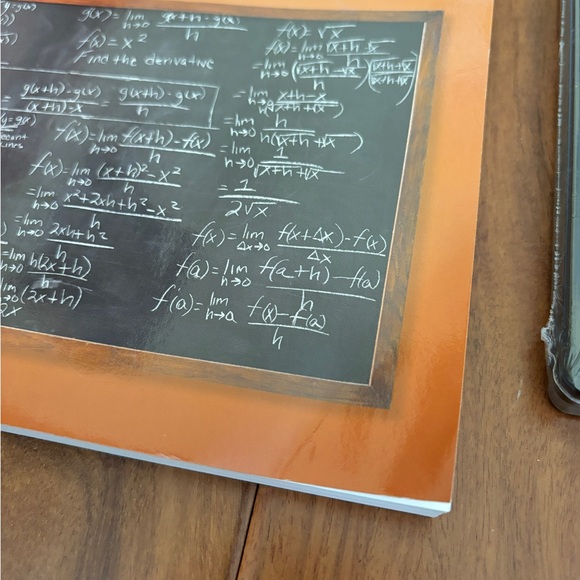 g(x) = lim h→0 g(x+h)-g(x) / h
f(x) = x²
Find the derivative
g(x+h)-g(x) / (x+h)-x = g(x+h)-g(x) / h
f(x) = lim h→0 f(x+h)-f(x) / h
f(x) = lim h→0 (x+h)²-x² / h
= lim h→0 x²+2xh+h²-x² / h
= lim h→0 2xh+h² / h
= lim h→0 h(2x+h) / h
lim →0 (2x+h)
2x
f(x) = √x
f(x) = lim h→0 √x+h-√x / h
= lim h→0 (√x+h-√x / h)(√x+h+√x / √x+h+√x)
= lim h→0 x+h-x / h(√x+h+√x)
= lim h→0 h / h(√x+h+√x)
= lim h→0 1 / √x+h+√x
= 1 / 2√x
f(x) = lim Δx→0 f(x+Δx)-f(x) / Δx
f(a) = lim h→0 f(a+h)-f(a) / h
f'(a) = lim h→a f(x)-f(a) / h